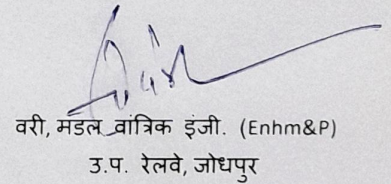 वरी, मंडल यांत्रिक इंजी. (Enhm&P)
उ.प. रेलवे, जोधपुर